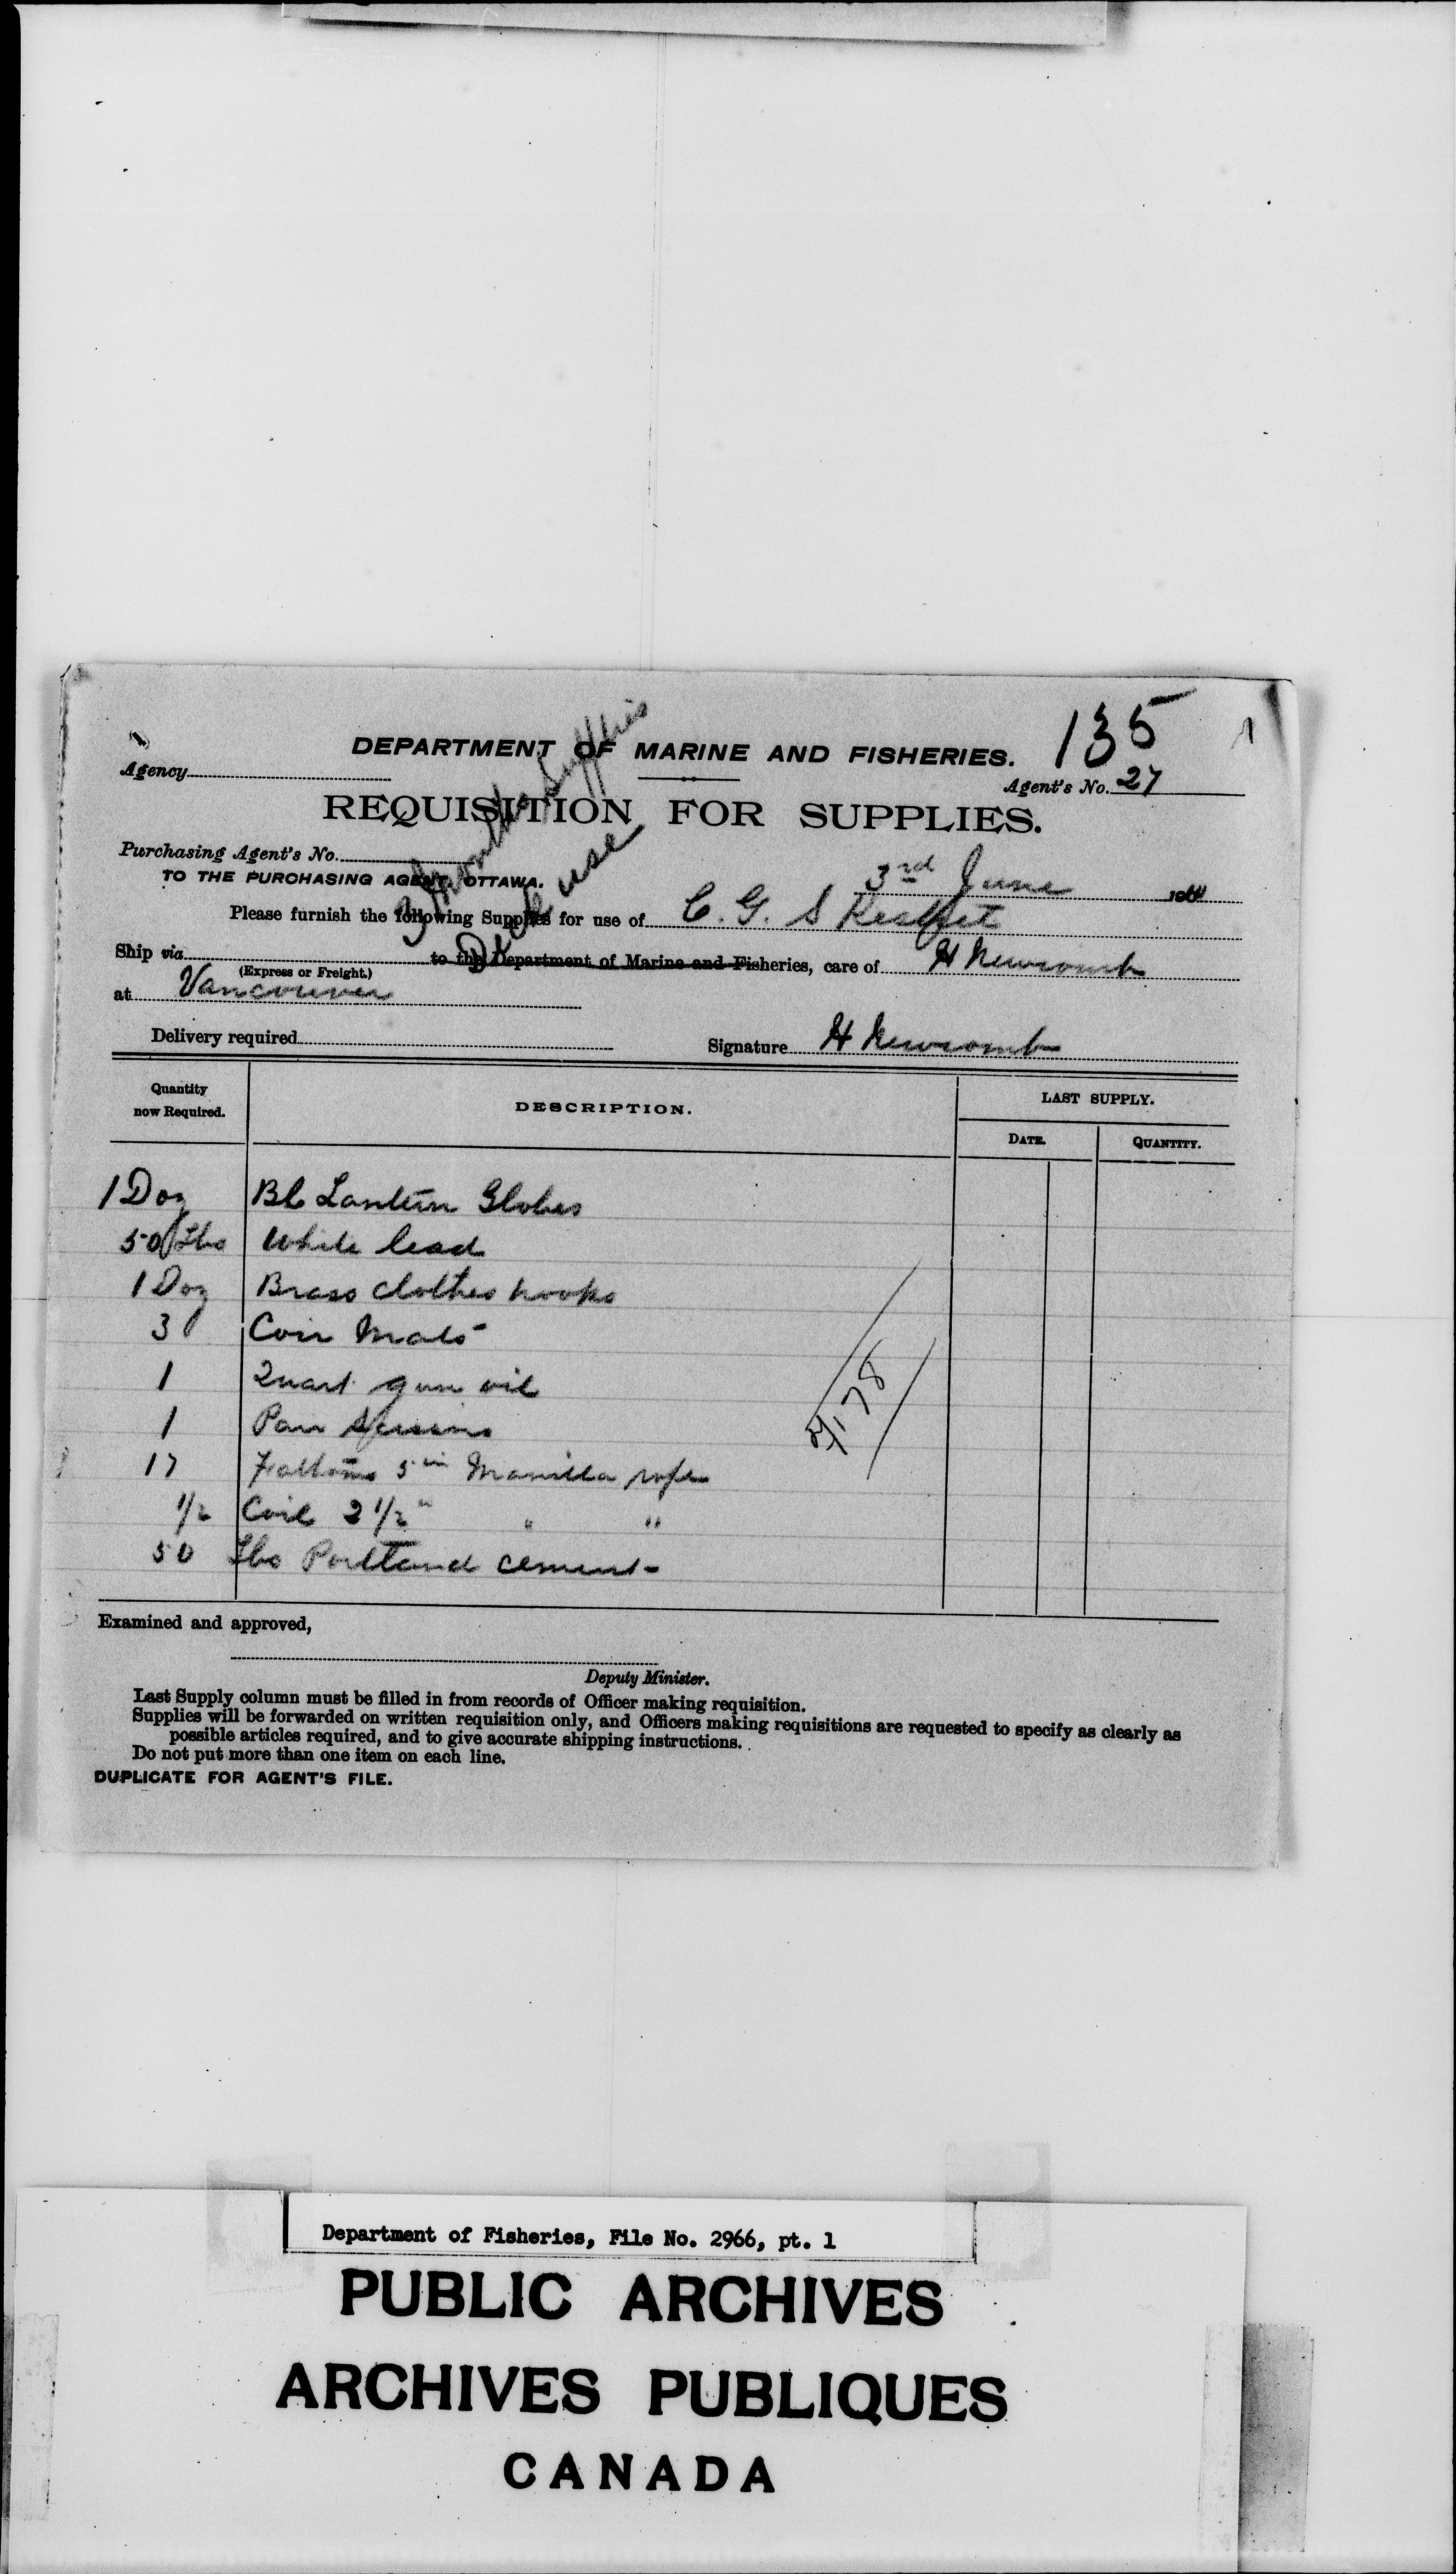 135
DEPARTMENT OF MARINE AND FISHERIES.
Agency
Agent's No. 27
REQUISITION FOR SUPPLIES.
3 months supplies
Deck use
Purchasing Agent's No.
TO THE PURCHASING AGENT, OTTAWA.
3rd June 190
Please furnish the following Supplies for use of C. G. S Kestrel
Ship via to the Department of Marine and Fisheries, care of H Newcomb
(Express or Freight.)
at Vancouver
Delivery required
Signature H Newcomb
Quantity now Required. DESCRIPTION. LAST SUPPLY.
DATE. QUANTITY.
1 Doz Bl Lantern Globes
50 Lbs White lead
1 Doz Brass clothes hooks
3 Coir Mats
1 Quart gun oil
1 Pair Scissors
17 Fathoms 5 in Manilla rope
1/2 Coil 2 1/2 " " "
50 Lbs Portland cement
Examined and approved,
Deputy Minister.
Last Supply column must be filled in from records of Officer making requisition.
Supplies will be forwarded on written requisition only, and Officers making requisitions are requested to specify as clearly as
possible articles required, and to give accurate shipping instructions.
Do not put more than one item on each line.
DUPLICATE FOR AGENT'S FILE.
Department of Fisheries, File No. 2966, pt. 1
PUBLIC ARCHIVES
ARCHIVES PUBLIQUES
CANADA